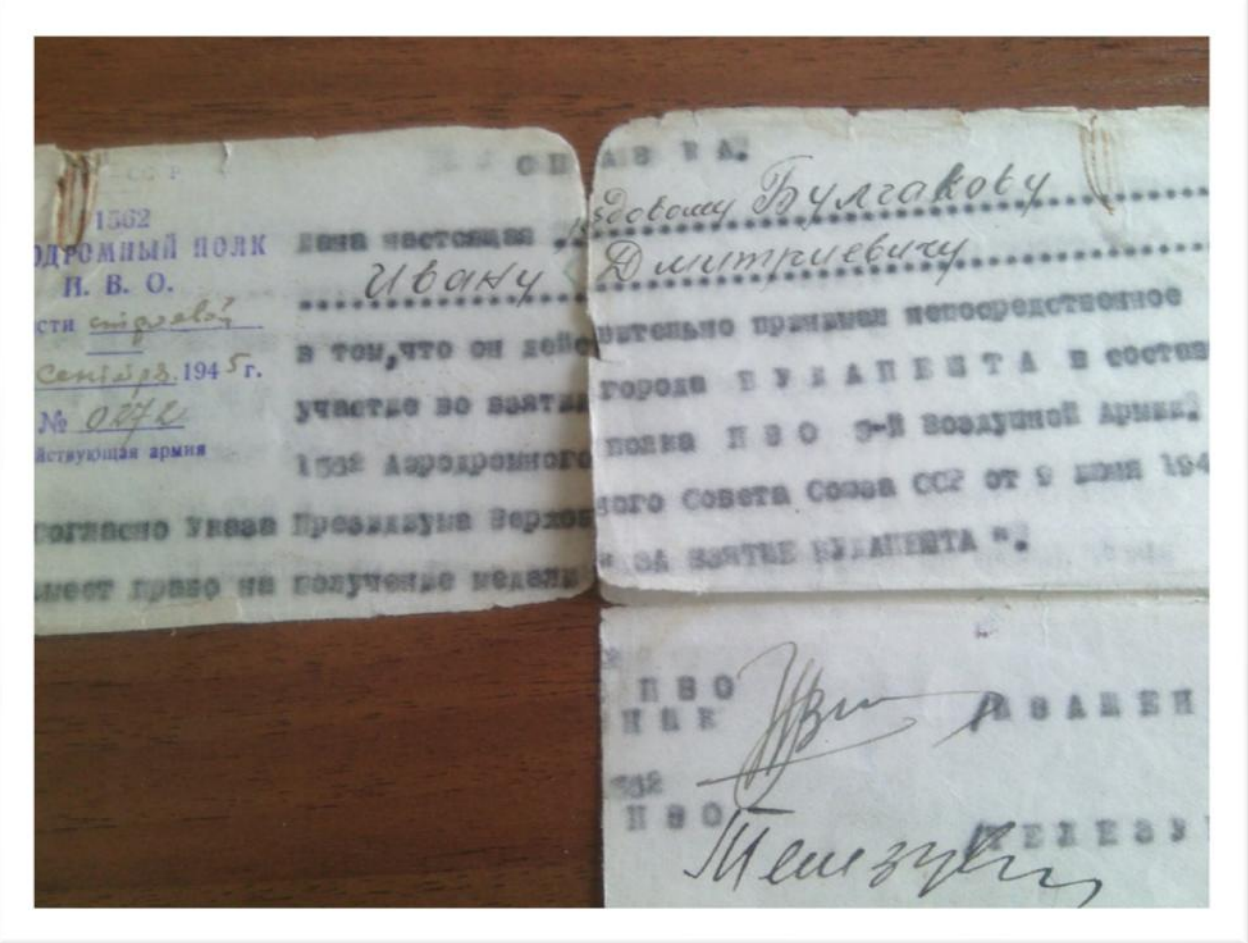 СПРАВКА.
СССР
1562
ОДРОМНЫЙ ПОЛК
П. В. О.
сти строевой
сентября 1945 г.
№ 0272
йствующая армия
Дана настоящая рядовому Булгакову
Ивану Дмитриевичу
в том, что он действительно принимал непосредственное
участие во взятии города БУДАПЕШТА в состав
1562 Аэродромного полка ПВО 9-й Воздушной Армии.
согласно Указа Президиума Верховного Совета Союза ССР от 9 июня 194
имеет право на получение медали "ЗА ВЗЯТИЕ БУДАПЕШТА".
ПВО
НИК
562
ПВО